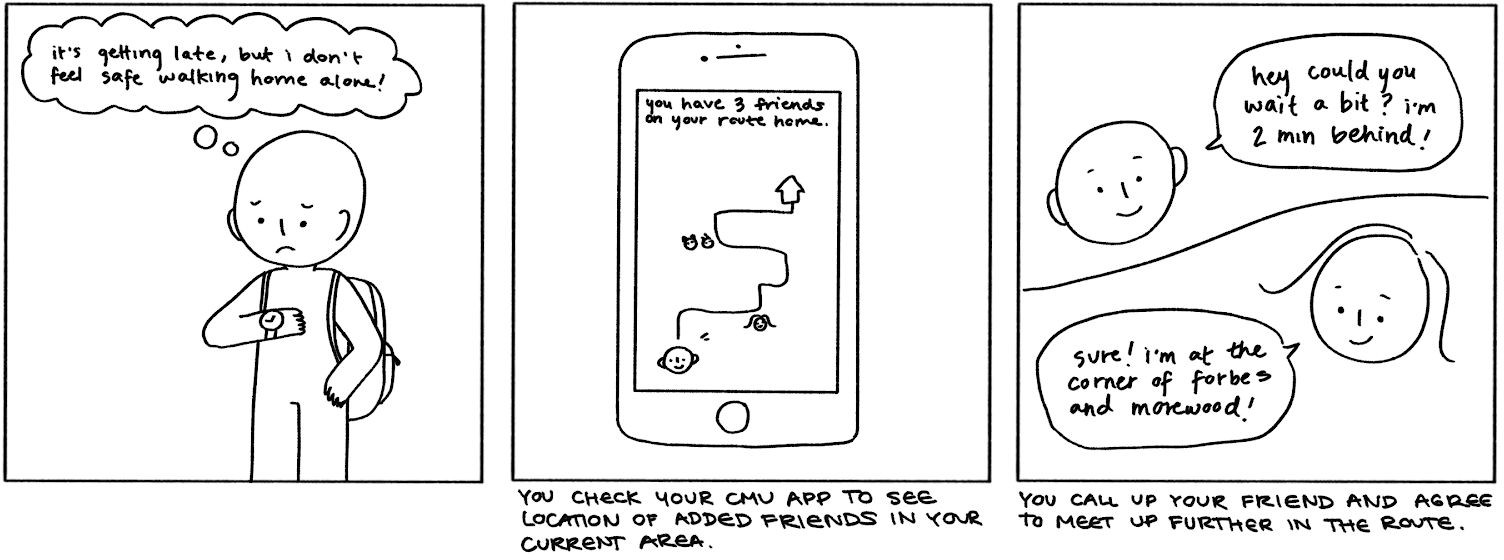 it's getting late, but i don't
feel safe walking home alone!
you have 3 friends
on your route home.
YOU CHECK YOUR CMU APP TO SEE
LOCATION OF ADDED FRIENDS IN YOUR
CURRENT AREA.
hey could you
wait a bit? i'm
2 min behind!
sure! i'm at the
corner of forbes
and morewood!
YOU CALL UP YOUR FRIEND AND AGREE
TO MEET UP FURTHER IN THE ROUTE.